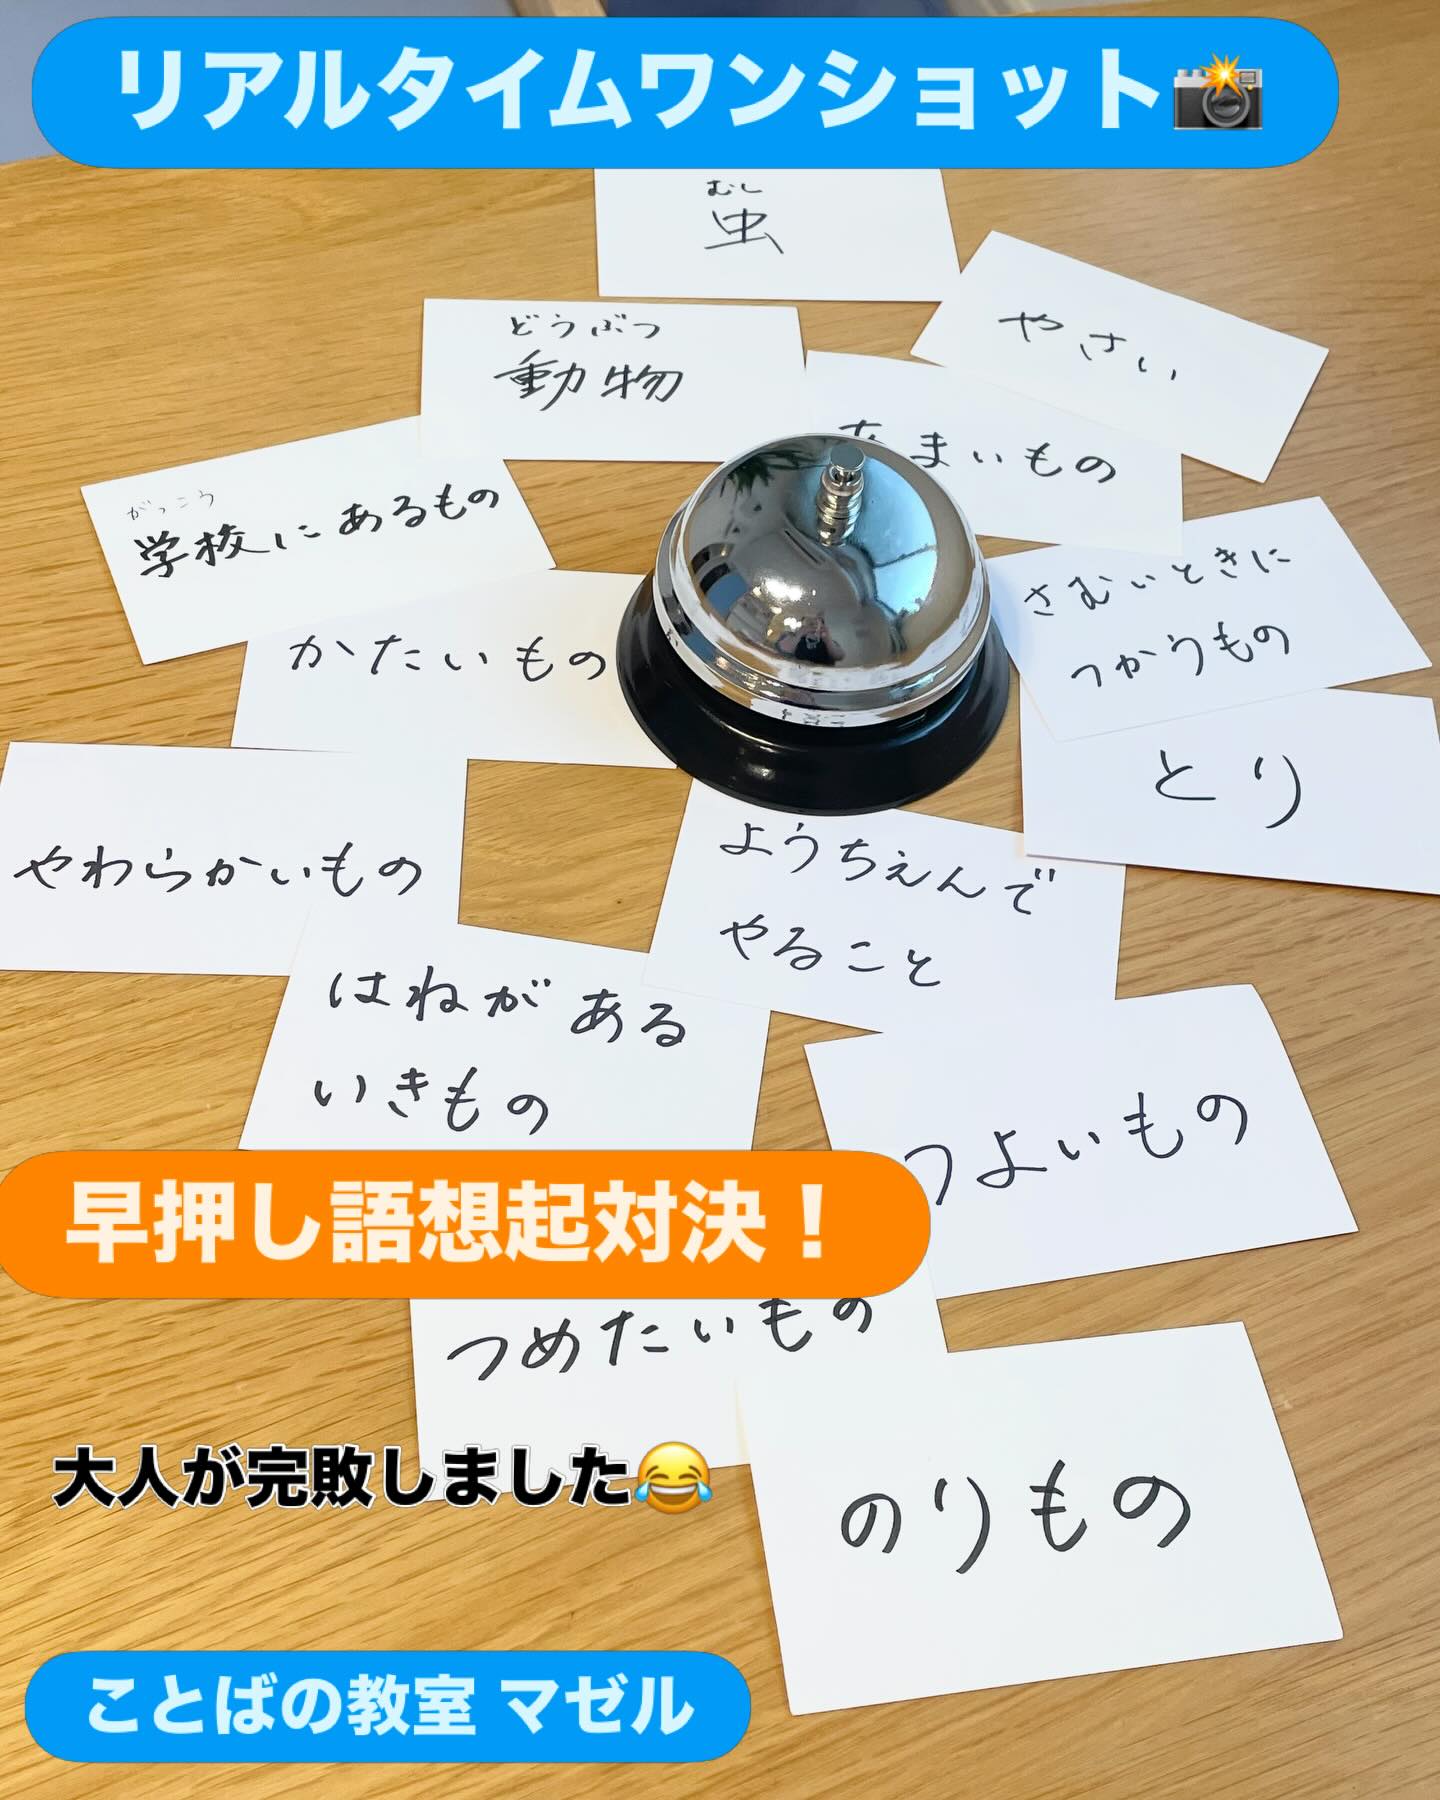 リアルタイムワンショット📸
むし
虫
やさい
どうぶつ
動物
あまいもの
がっこう
学校にあるもの
さむいときに
つかうもの
かたいもの
とり
やわらかいもの
ようちえんで
やること
はねがある
いきもの
つよいもの
早押し語想起対決！
つめたいもの
大人が完敗しました😂
のりもの
ことばの教室 マゼル